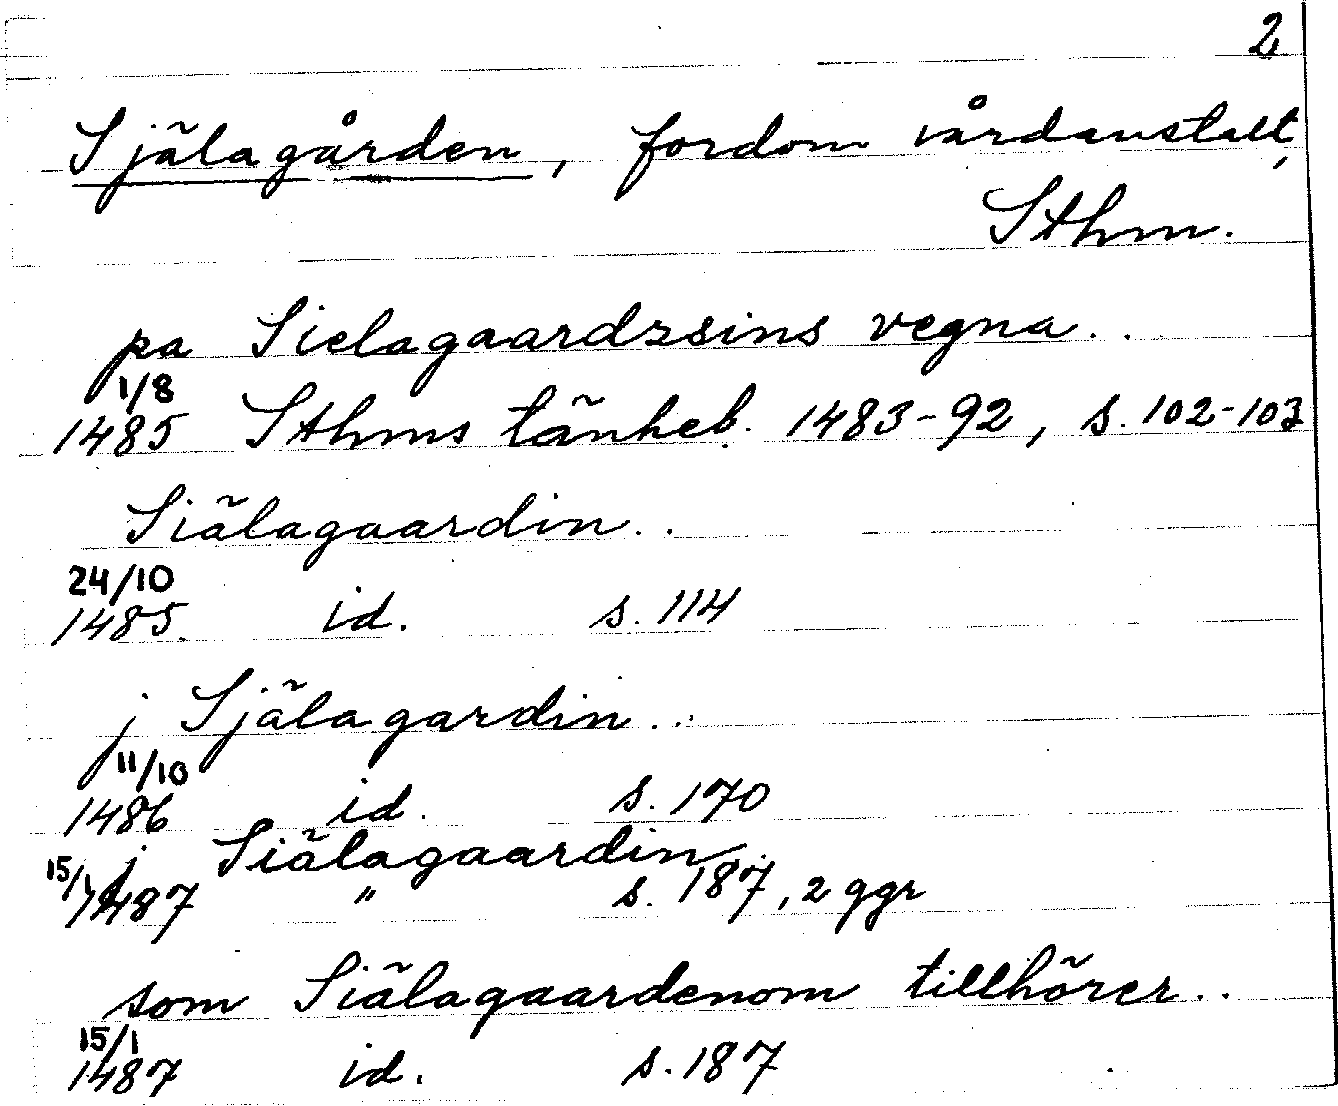 2
Själagården, fordom vårdanstalt,
Sthm.
pa Sielagaardzsins vegna..
1/8
1485 Sthms tänkeb. 1483-92, s. 102-103
Siälagaardin..
24/10
1485. id. s. 114
j Själagardin..
11/10
1486 id. s. 170
j Siälagaardin..
15/1 1487 " s. 187, 2 ggr
som Siälagaardenom tillhörer..
15/1
1487 id. s. 187